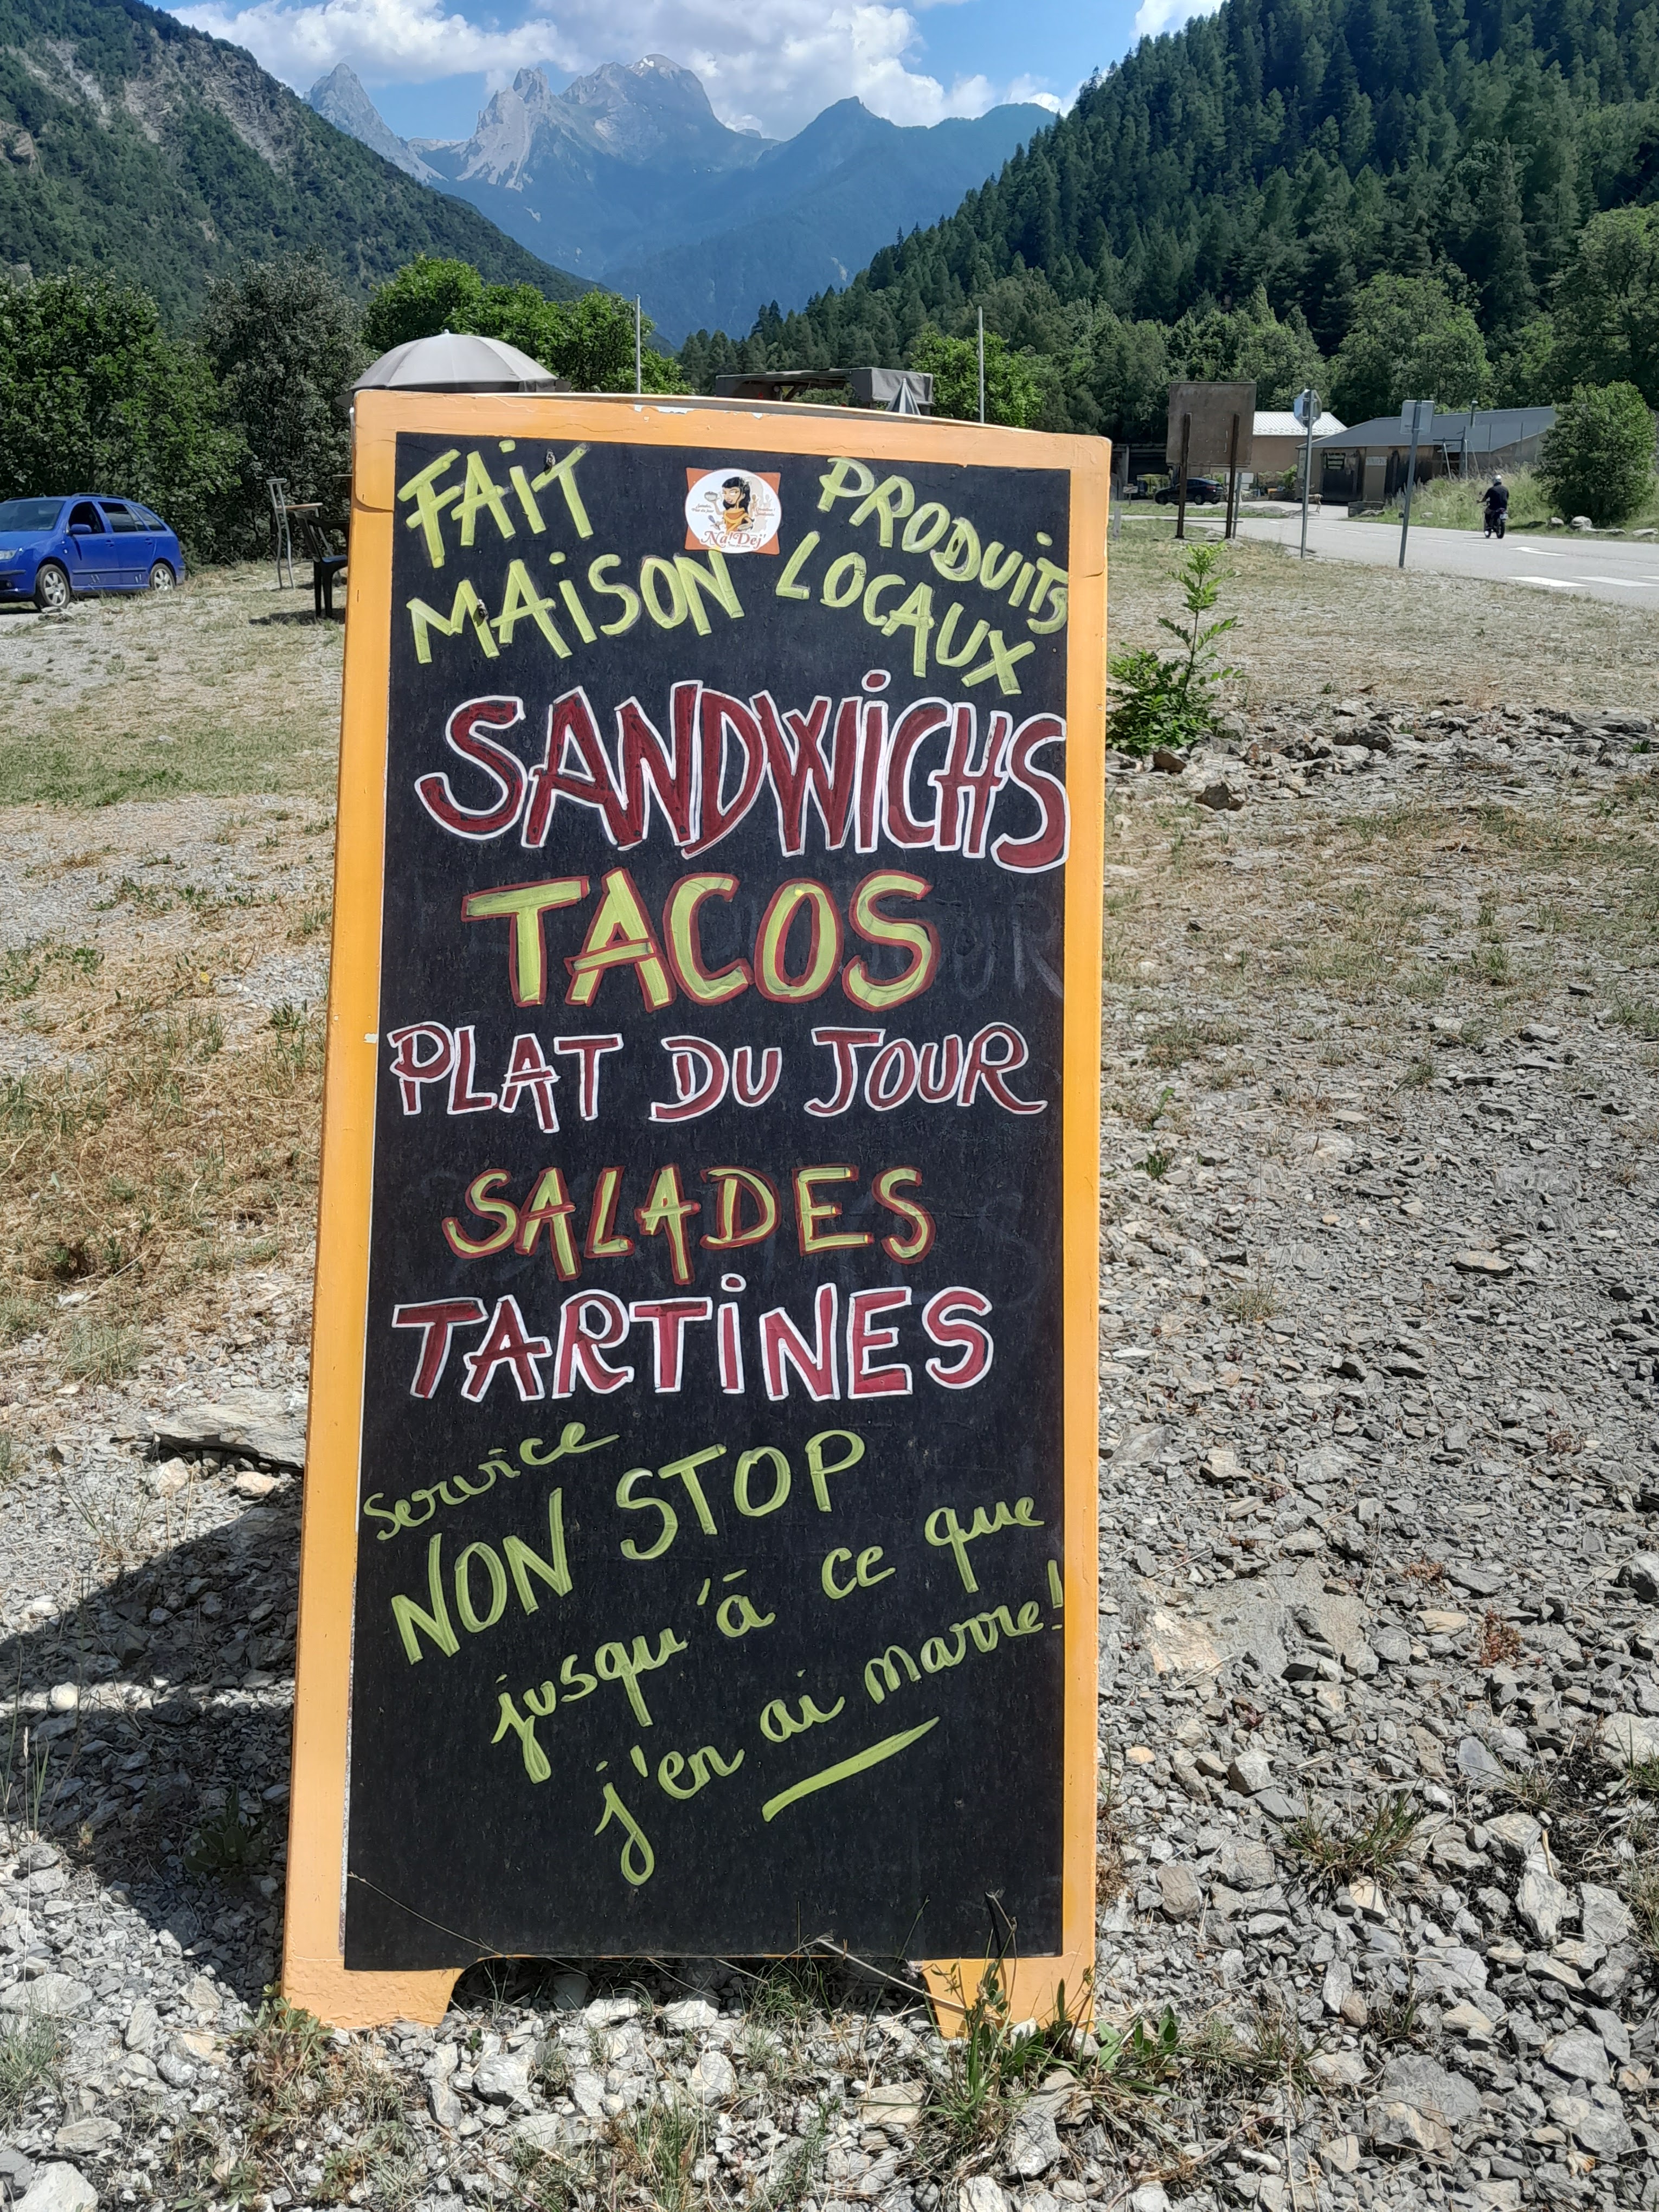 FAiT
MAiSON
Na'Dej'
PRODUiTS
LOCAUX
SANDWiCHS
TACOS
PLAT DU JOUR
SALADES
TARTiNES
Service
NON STOP
jusqu'à ce que
j'en ai marre!